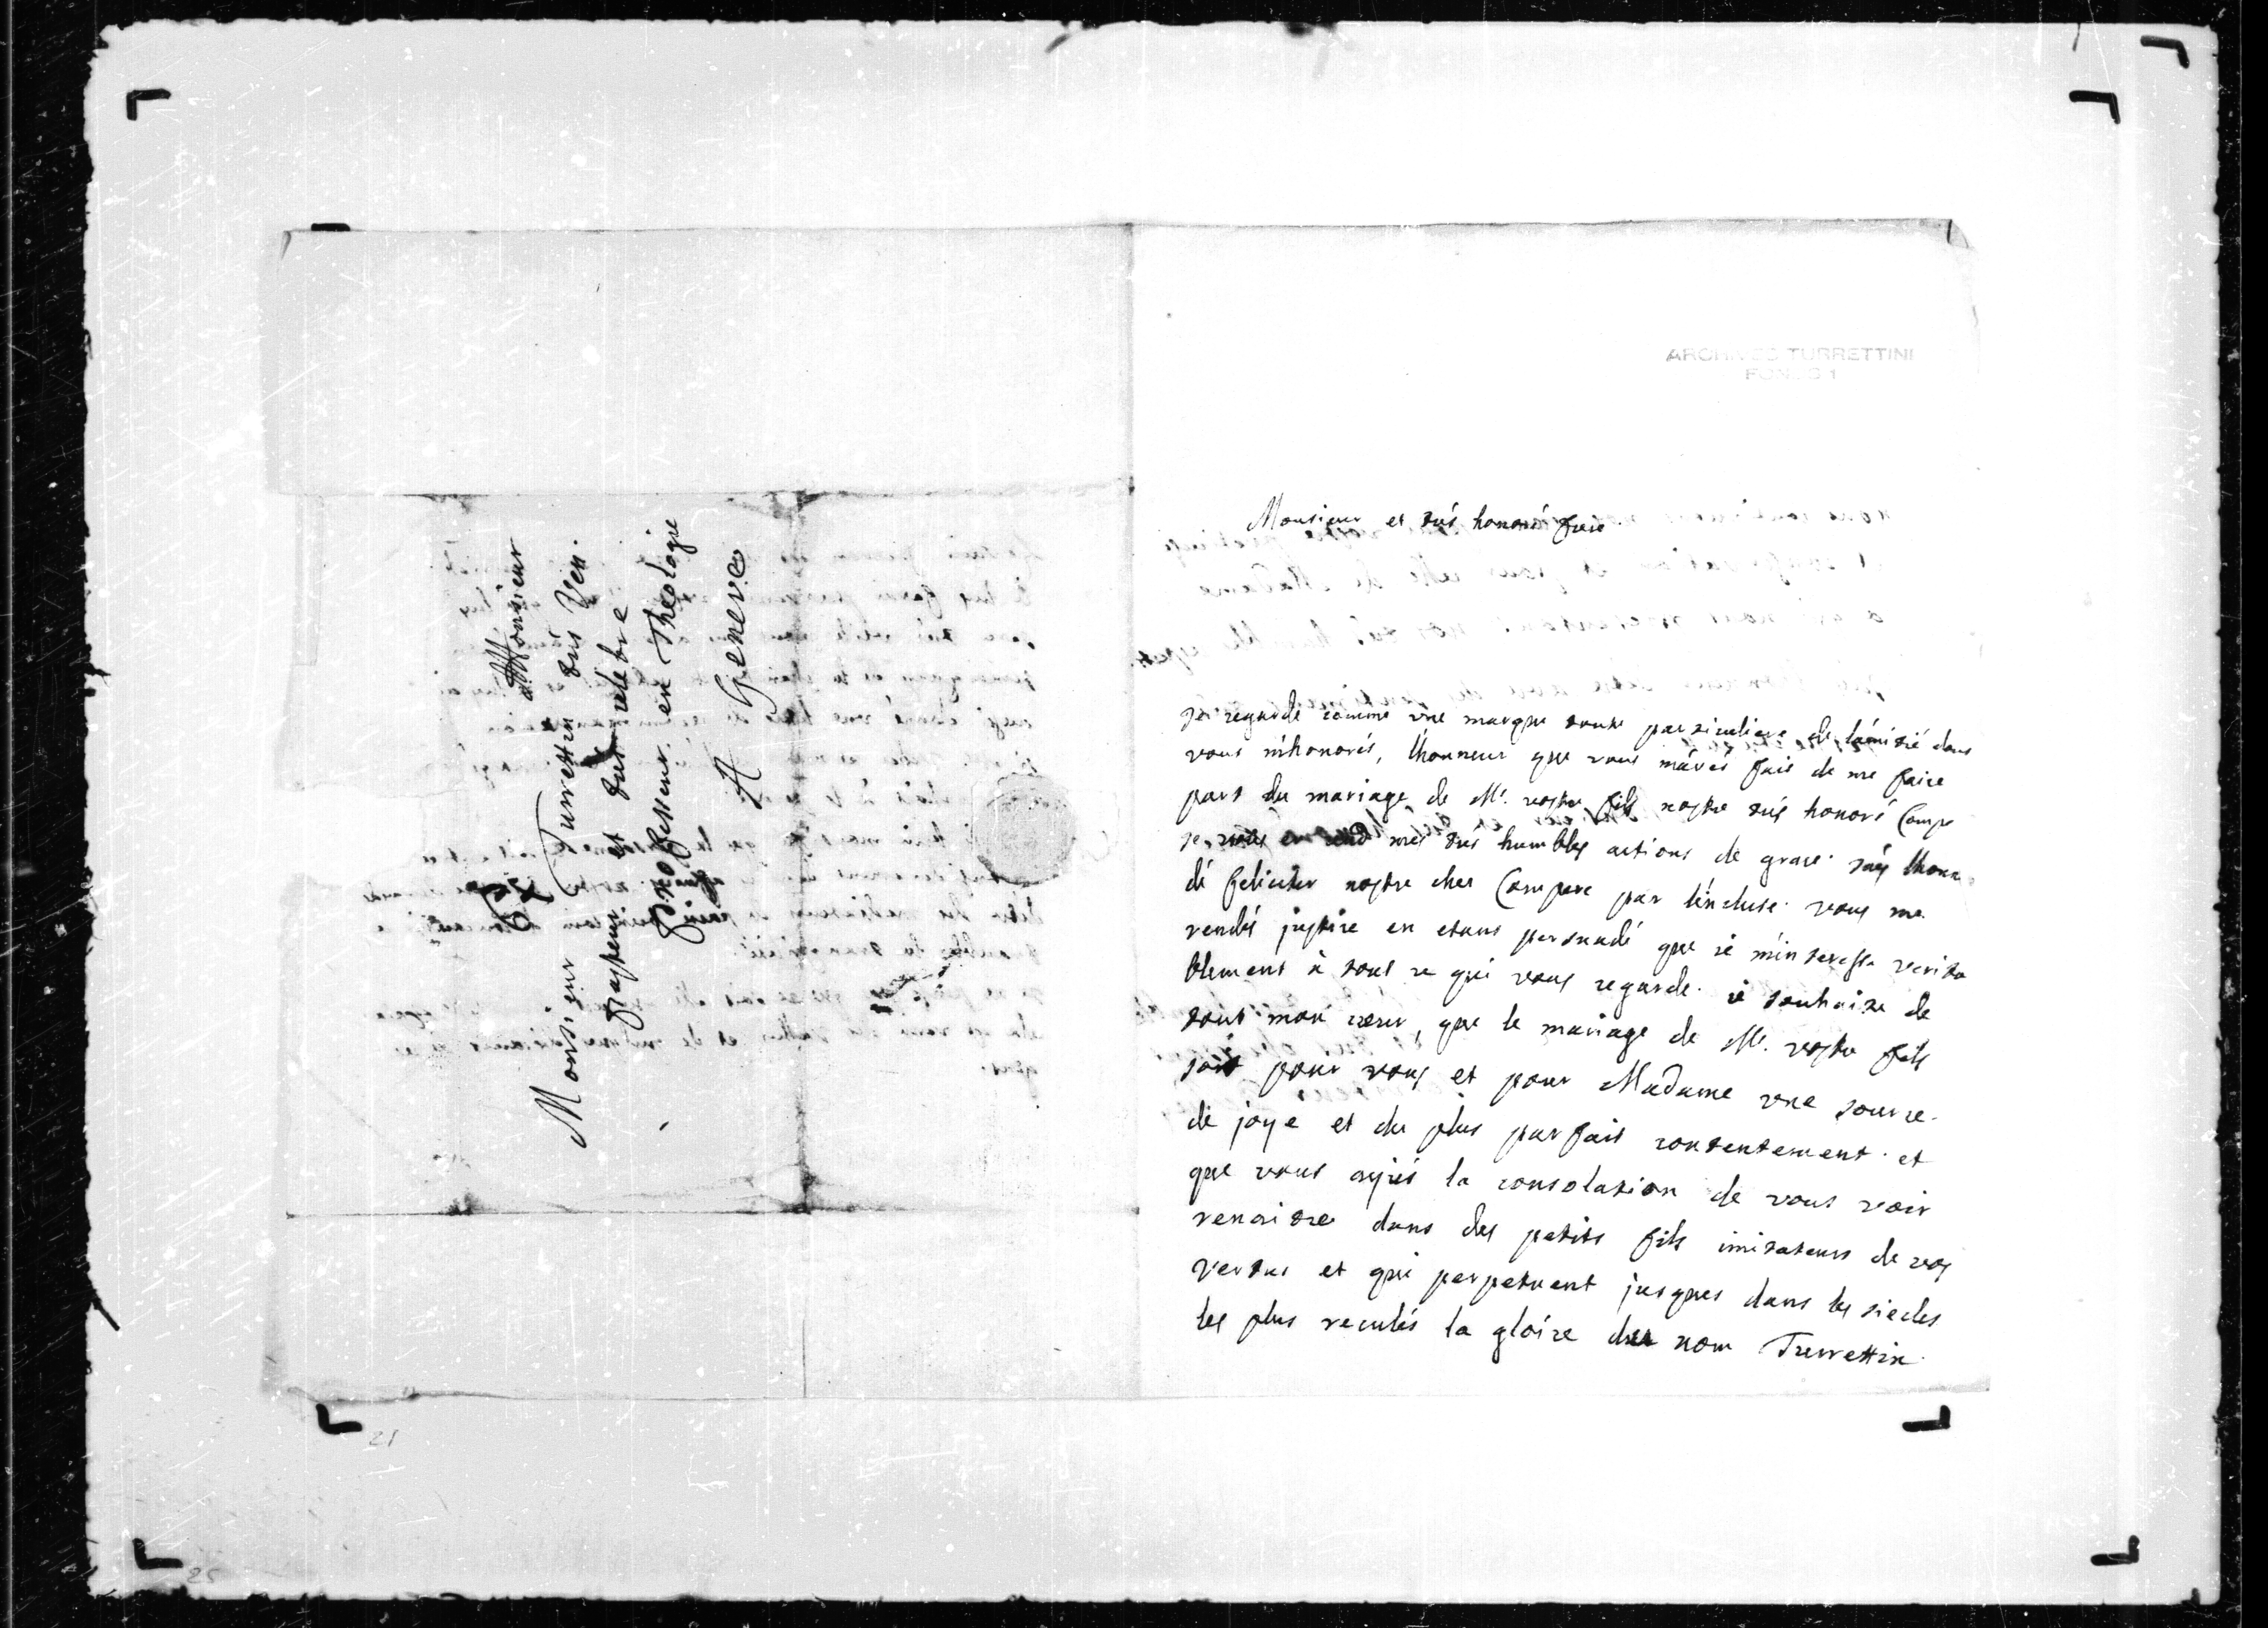 A Monsieur
Monsieur Turrettin très Ven.
pasteur et très celebre
professeur en Theologie
A Geneve
ARCHIVES TURRETTINI
Monsieur et très honoré frere
je regarde comme une marque toute particuliere de l'amitié dont
vous m'honorés, l'honneur que vous m'avés fait de me faire
part du mariage de Mr. vostre fils nostre très honoré Comp
je vous en rend mes très humbles actions de grace. j'ay l'honn
de feliciter nostre cher Compere par l'incluse. vous me
rendés justice en etant persuadé que je m'interesse verita
blement à tout ce qui vous regarde. je souhaite de
tout mon cœur, que le mariage de Mr. vostre fils
soit pour vous et pour Madame une source
de joye et du plus parfait contentement. et
que vous ayiés la consolation de vous voir
renaitre dans des petits fils imitateurs de vos
vertus et qui perpetuent jusques dans les siecles
les plus reculés la gloire du nom Turrettin.
21
25